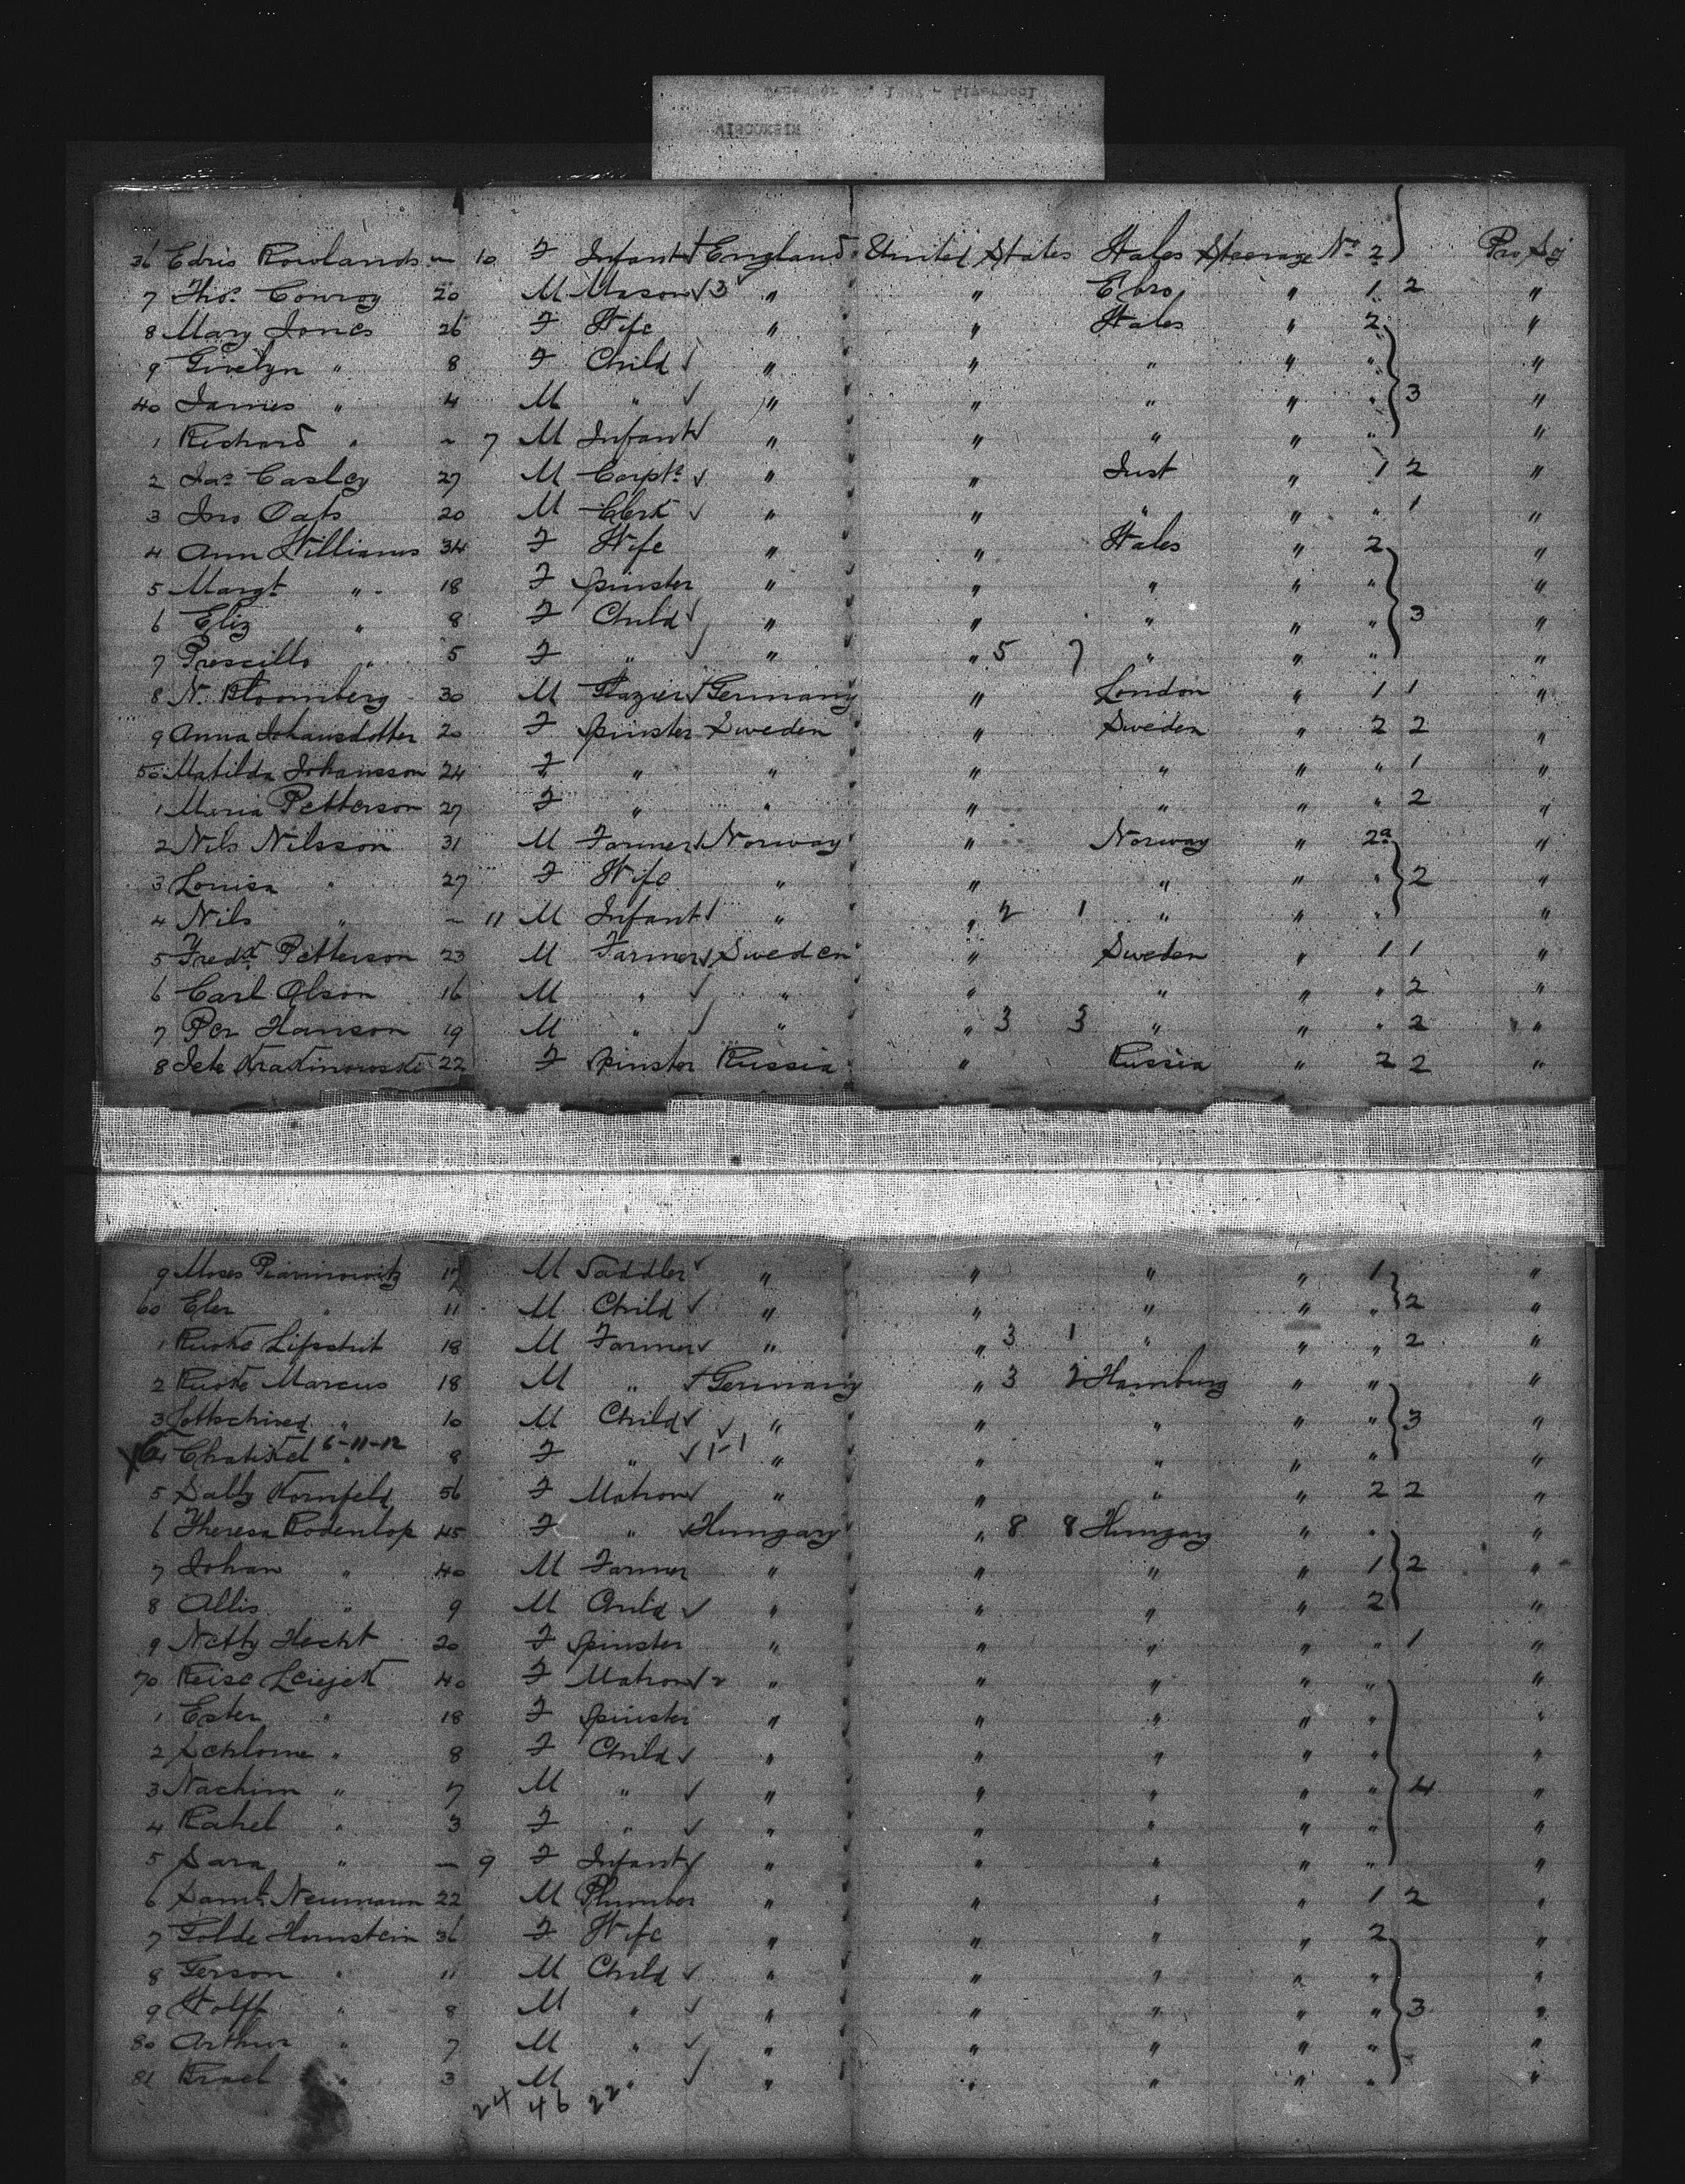 36 Edris Rowlands ~ 10 F Infant England United States Wales Steerage No 2 Pro Soj
7 Thos. Conroy 20 M Mason 3 " " Ebro " 1 2 "
8 Mary Jones 26 F Wife " " Wales " 2 "
9 Givelyn " 8 F Child " " " " " "
40 James " 4 M " " " " " " 3 "
1 Richard " ~ 7 M Infant " " " " " "
2 Jas Casley 27 M Carptr " " Just " 1 2 "
3 Jno Oats 20 M Clerk " " " " " 1 "
4 Ann Williams 34 F Wife " " Wales " 2 "
5 Margt " 18 F Spinster " " " " " "
6 Eliz " 8 F Child " " " " " 3 "
7 Prescilla " 5 F " " " 5 7 " " " "
8 N. Bloomberg 30 M Glazier Germany " London " 1 1 "
9 Anna Johansdotter 20 F Spinster Sweden " Sweden " 2 2 "
50 Matilda Johansson 24 F " " " " " " 1 "
1 Meria Petterson 27 F " " " " " " 2 "
2 Nils Nilsson 31 M Farmer Norway " Norway " 2a "
3 Louisa " 27 F Wife " " " " " 2 "
4 Nils " ~ 11 M Infant " " 2 1 " " " "
5 Fredk Petterson 23 M Farmer Sweden " Sweden " 1 1 "
6 Carl Olson 16 M " " " " " " 2 "
7 Per Hanson 19 M " " " 3 3 " " " 2 "
8 22 F Spinster Russia " Russia " 2 2 "
9 Moses 17 M Saddler " " " " 1 "
60 " 11 M Child " " " " " 2 "
1 Lipschit 18 M Farmer " " 3 1 " " " 2 "
2 Marcus 18 M " Germany " 3 2 Hamburg " " "
3 " 10 M Child " " " " " 3 "
4 6-11-12 " 8 F " 1-1 " " " " " "
5 Sally Kornfeld 56 F Matron " " " " 2 2 "
6 Theresa 45 F " Hungary " 8 8 Hungary " " "
7 Johan " 40 M Farmer " " " " 1 2 "
8 Allis " 9 M Child " " " " 2 "
9 Netty Hecht 20 F Spinster " " " " " 1 "
70 Reise 40 F Matron 2 " " " " " "
1 Ester " 18 F Spinster " " " " " "
2 Schlome " 8 F Child " " " " " "
3 Nachim " 7 M " " " " " " 4 "
4 Rahel " 3 F " " " " " " "
5 Sara " — 9 F Infant " " " " " "
6 Saml Neumann 22 M Plumber " " " " 1 2 "
7 Golde Hornstein 36 F Wife " " " " 2 "
8 Gerson " 11 M Child " " " " " "
9 Wolff " 8 M " " " " " " 3 "
80 Arthur " 7 M " " " " " " "
81 " 3 M " " " " " " "
24 46 22